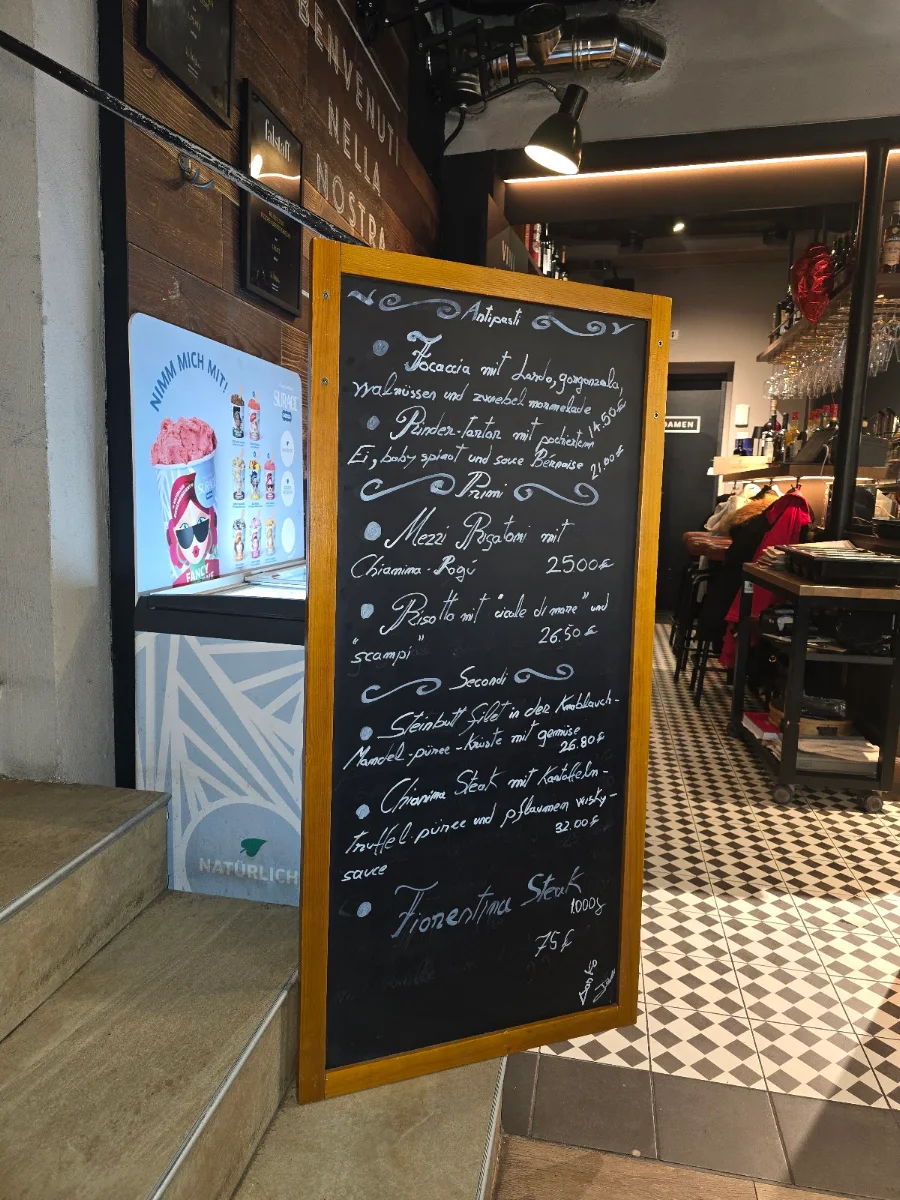 BENVENUTI
NELLA
NOSTRA
falstaff
NIMM MICH MIT!
FANCY
NATÜRLICH
DAMEN
Antipasti
Focaccia mit Lardo, gorgonzola,
walnüssen und zwiebel marmelade
14.50€
Rinder-Tartar mit pochiertem
Ei, baby spinat und sauce Bérnaise
21.00€
Primi
Mezzi Rigatoni mit
Chianina-Ragú 2500€
Risotto mit "cicale di mare" und
"scampi" 26.50€
Secondi
Steinbutt filet in der Knoblauch-
Mandel-püree-Kruste mit gemüse
26.80€
Chianina Steak mit Kartoffeln-
Trüffel-püree und pflaumen wisky-
sauce 32.00€
Fiorentina Steak
1000g
75€